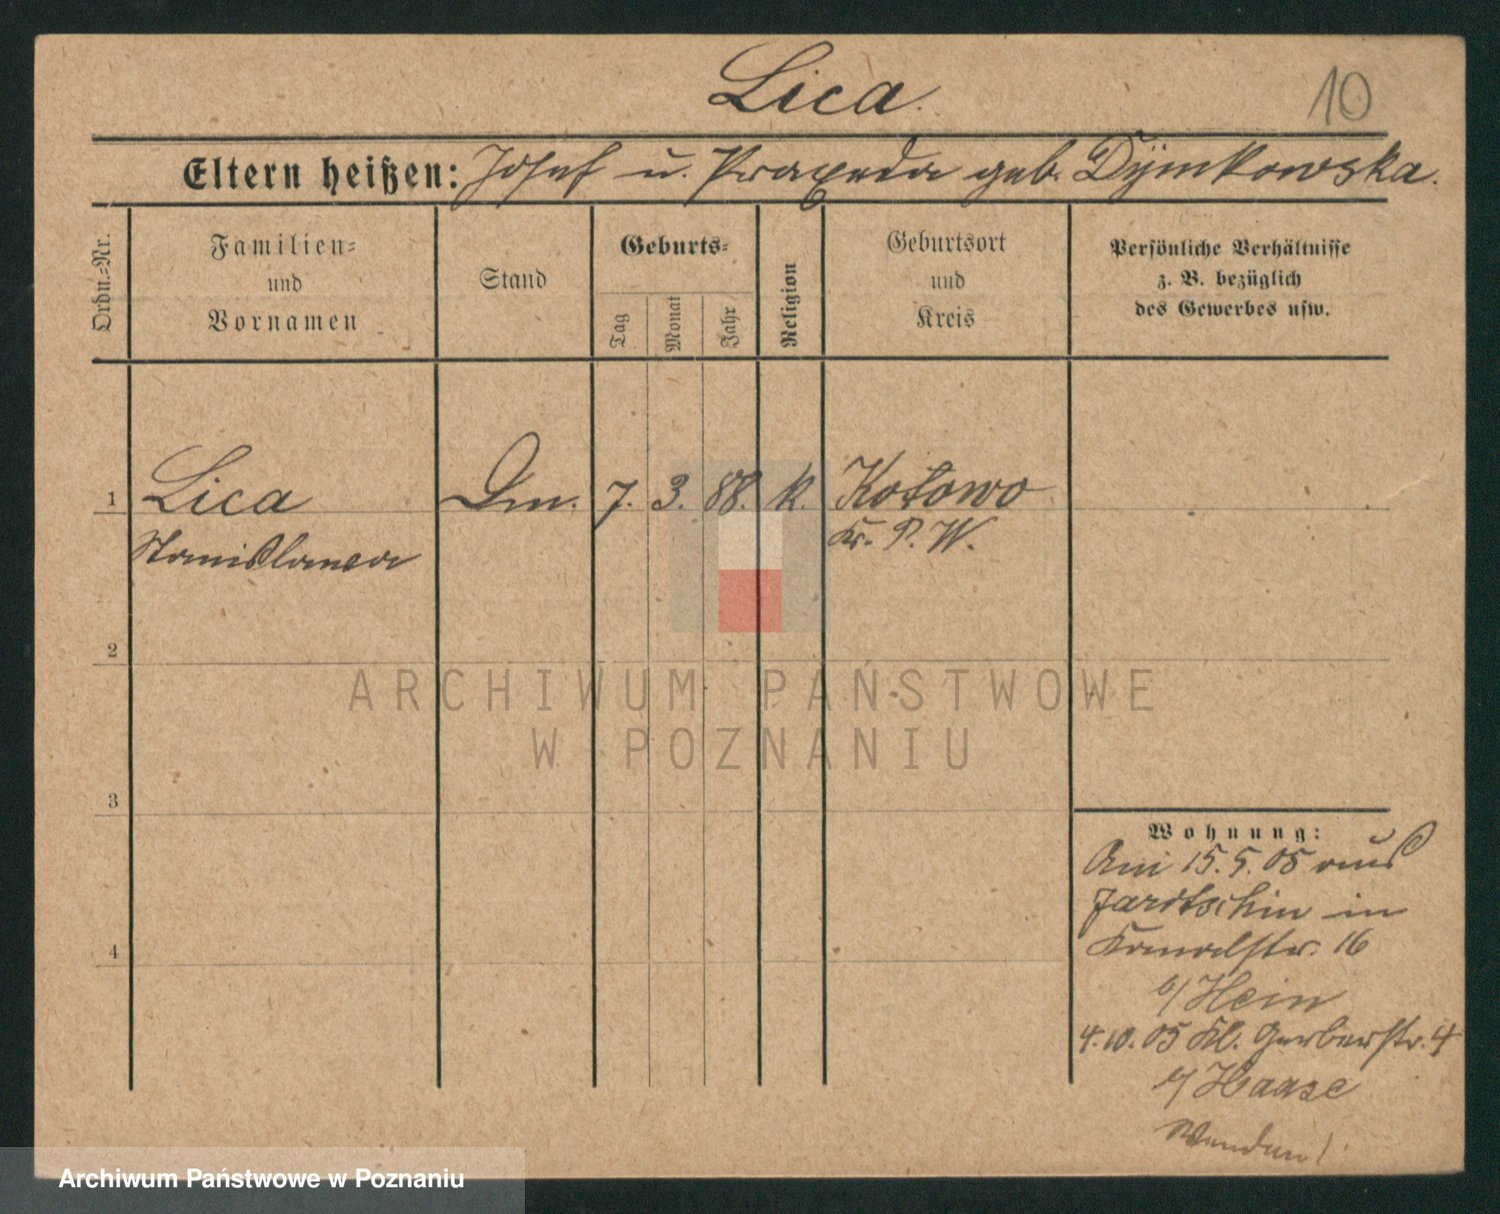 Lica
10
Eltern heißen: Josef u. Praxeda geb. Dymkowska.
Ordn.=Nr.
Familien=
und
Vornamen
Stand
Geburts=
Tag
Monat
Jahr
Religion
Geburtsort
und
Kreis
Persönliche Verhältnisse
z. B. bezüglich
des Gewerbes usw.
1 Lica 7. 3. 88. k. Kotowo
Stanislawa Kr. P. W.
2
3
4
Wohnung:
Am 15. 5. 05 aus
Jarotschin in
16
b/ Hein
4. 10. 05 Kl. Gerberstr. 4
b/ Haase
Wenden!
ARCHIWUM PAŃSTWOWE
W POZNANIU
Archiwum Państwowe w Poznaniu